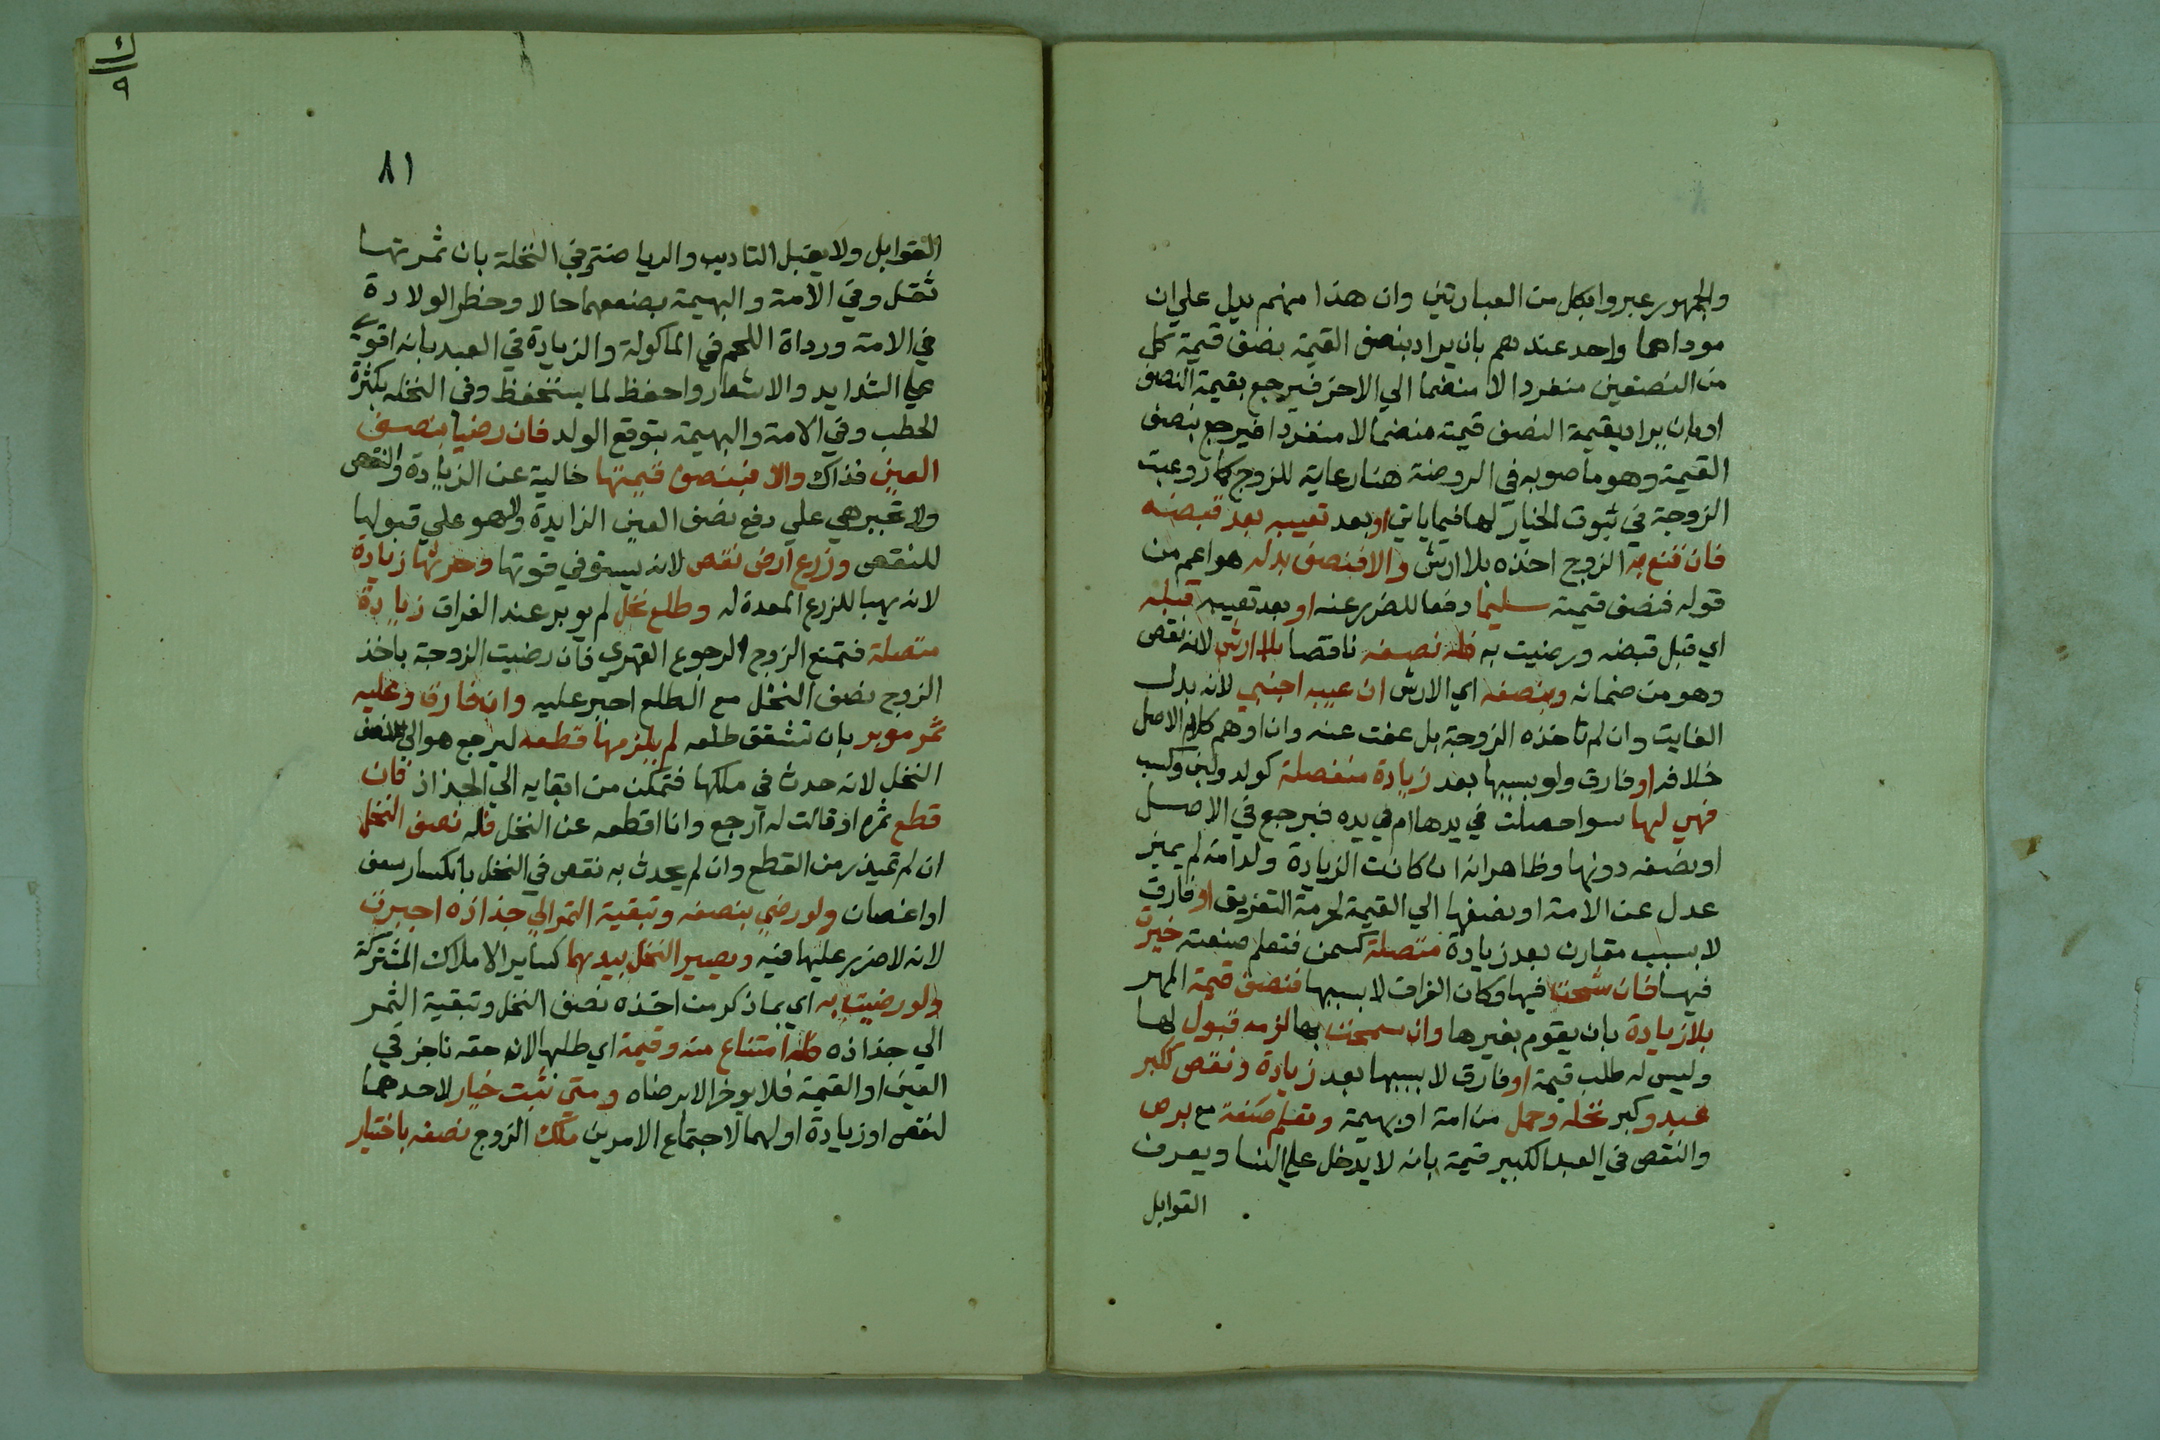 والجمهور عبروا بكل من العبارتين وان هذا منهم يدل علي ان
موداهما واحد عندهم بان يراد بنصف القيمة نصف قيمة كل
من النصفين منفردا لا منضما الي الاخر فيرجع بقيمة النصف
او بان يراد بقيمة النصف قيمته منضما لا منفردا فيرجع بنصف
القيمة وهو ما صوبه في الروضة هنا رعاية للزوج كما روعيت
الزوجة في ثبوت الخيار لها فيما ياتي او بعد تعيبه بعد قبضه
فان قنع به الزوج اخذه بلا ارش والا فنصف بدله هو اعم من
قوله فنصف قيمته سليما دفعا للضرر عنه او بعد تعيبه قبله
اي قبل قبضه ورضيت به فله نصفه ناقصا بلا ارش لانه نقص
وهو من ضمانه وبنصفه اي الارش ان عيبه اجنبي لانه بدل
الفايت وان لم تاخذه الزوجة بل عفت عنه وان اوهم كلام الاصل
خلافه او فارق ولو بسببها بعد زيادة منفصلة كولد ولبن وكسب
فهي لها سوا حصلت في يدها ام في يده فيرجع في الاصل
او نصفه دونها وظاهر انه ان كانت الزيادة ولد امة لم يميز
عدل عن الامة او نصفها الي القيمة لحرمة التفريق او فارق
لا بسبب مقارن بعد زيادة متصلة كسمن فتعلم صنعة خيرت
فيها فان شحت فيها وكان الفراق لا بسببها فنصف قيمة المهر
بلا زيادة بان يقوم بغيرها وان سمحت بها لزمه قبول لها
وليس له طلب قيمة او فارق لا بسببها بعد زيادة ونقص ككبر
عبد وكبر نخله وحمل من امة او بهيمة وتعلم صنعة مع برص
والنقص في العبد الكبير قيمة بانه لا يدخل علي النسا ويعرف
القوابل
ء
٩
٨١
القوابل ولا يقبل التاديب والرياضة وفي النخلة بان ثمرتها
تقل وفي الامة والبهيمة بضعفهما حالا وخطر الولادة
في الامة ورداة اللحم في الماكولة والزيادة في العبد بانه اقوي
علي الشدايد والاسفار واحفظ لما يستحفظ وفي النخله بكثرة
الحطب وفي الامة والبهيمة بتوقع الولد فان رضيا بنصف
العين فذاك والا فبنصف قيمتها خالية عن الزيادة والنقص
ولا تجبر هي علي دفع نصف العين الزايدة ولا هو علي قبولها
للنقص وزرع ارض نقص لانه يستوفي قوتها وحرثها زيادة
لانه يهيا للزرع المعدة له وطلع نخل لم يوبر عند الفراق زيادة
متصلة فتمنع الزوج الرجوع القهري فان رضيت الزوجة باخذ
الزوج نصف النخل مع الطلع اجبر عليه وان فارق وعليه
ثمر موبر بان تشقق طلعه لم يلزمها قطعه ليرجع هو الي نصف
النخل لانه حدث في ملكها فتمكن من ابقايه الي الجذاذ فان
قطع ثمره او قالت له ارجع وانا اقطعه عن النخل فله نصف النخل
ان لم يحدث به نقص في النخل بانكسار سعف
او اغصان ولو رضي بنصفه وتبقية الثمر الي جذاذه اجبرت
لانه لا ضرر عليها فيه ويصير النخل بيدهما كساير الاملاك المشتركة
ولو رضيت به اي بما ذكر من اخذه نصف النخل وتبقية الثمر
الي جذاذه فله امتناع منه وقيمة اي طلبها لان حقه ناجز في
العين او القيمة فلا يوخر الا برضاه ومتي ثبت خيار لاحدهما
لنقص او زيادة او لهما لاجتماع الامرين ملك الزوج نصفه باختيار